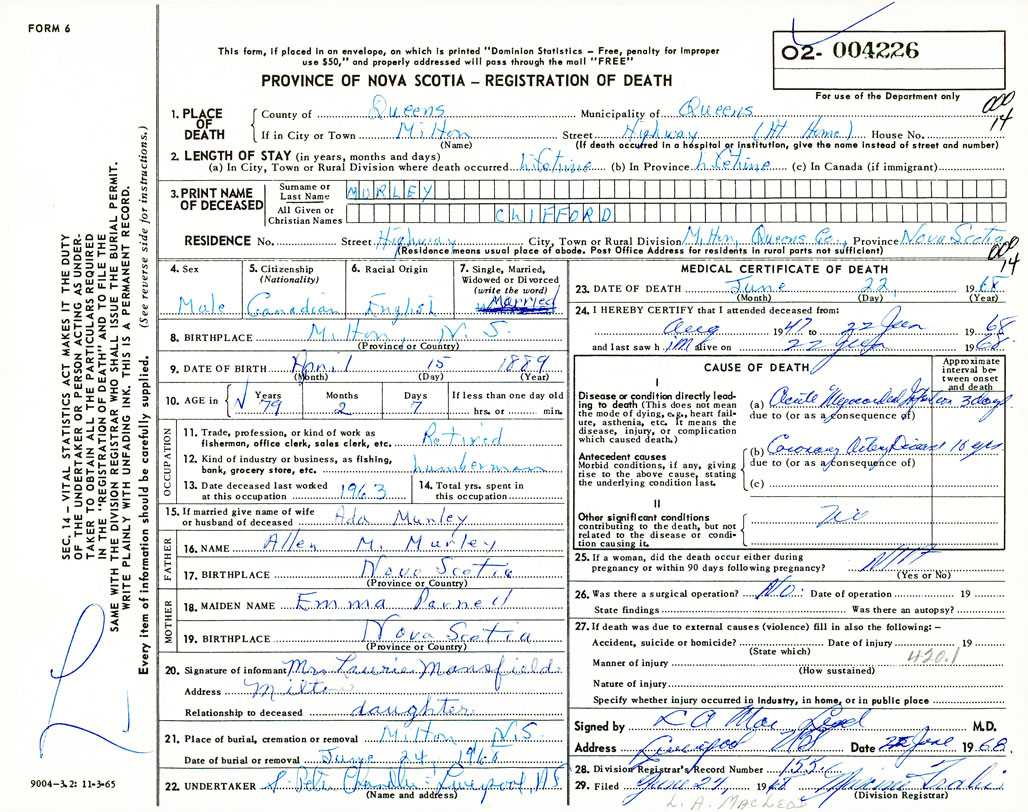 FORM 6
This form, if placed in an envelope, on which is printed "Dominion Statistics – Free, penalty for improper
use $50," and properly addressed will pass through the mail "FREE"
PROVINCE OF NOVA SCOTIA – REGISTRATION OF DEATH
02- 004226
For use of the Department only
000
14
1. PLACE OF DEATH
County of Queens Municipality of Queens
If in City or Town Milton Street Highway (At Home) House No.
(Name) (If death occurred in a hospital or institution, give the name instead of street and number)
2. LENGTH OF STAY (in years, months and days)
(a) In City, Town or Rural Division where death occurred Lifetime (b) In Province Lifetime (c) In Canada (if immigrant)
3. PRINT NAME OF DECEASED
Surname or Last Name MURLEY
All Given or Christian Names CLIFFORD
RESIDENCE No. Street Highway City, Town or Rural Division Milton, Queens Co., Province Nova Scotia
(Residence means usual place of abode. Post Office Address for residents in rural parts not sufficient)
000
14
4. Sex
Male
5. Citizenship (Nationality)
Canadian
6. Racial Origin
English
7. Single, Married, Widowed or Divorced (write the word)
Married
8. BIRTHPLACE Milton, N.S.
(Province or Country)
9. DATE OF BIRTH April 15 1889
(Month) (Day) (Year)
10. AGE in Years 79 Months 2 Days 7 If less than one day old
hrs. or min.
OCCUPATION
11. Trade, profession, or kind of work as fisherman, office clerk, sales clerk, etc. Retired
12. Kind of industry or business, as fishing, bank, grocery store, etc. Lumberman
13. Date deceased last worked at this occupation 1963
14. Total yrs. spent in this occupation
15. If married give name of wife or husband of deceased Ada Murley
FATHER
16. NAME Allen M. Murley
17. BIRTHPLACE Nova Scotia
(Province or Country)
MOTHER
18. MAIDEN NAME Emma Parnell
19. BIRTHPLACE Nova Scotia
(Province or Country)
20. Signature of informant Mrs Laurie Mansfield
Address Milton
Relationship to deceased daughter
21. Place of burial, cremation or removal Milton N.S.
Date of burial or removal June 24 1968
22. UNDERTAKER Chandler Liverpool, NS
(Name and address)
MEDICAL CERTIFICATE OF DEATH
23. DATE OF DEATH June 22, 1968
(Month) (Day) (Year)
24. I HEREBY CERTIFY that I attended deceased from:
Aug 1947 to 22 June 1968
and last saw him alive on 22 June 1968.
CAUSE OF DEATH
Approximate interval between onset and death
I
Disease or condition directly leading to death (This does not mean the mode of dying, e.g., heart failure, asthenia, etc. It means the disease, injury, or complication which caused death.)
(a) Acute Myocardial Infarction 3 days
due to (or as a consequence of)
Antecedent causes
Morbid conditions, if any, giving rise to the above cause, stating the underlying condition last.
(b) Coronary Artery Disease 16 yrs
due to (or as a consequence of)
(c)
II
Other significant conditions contributing to the death, but not related to the disease or condition causing it.
25. If a woman, did the death occur either during pregnancy or within 90 days following pregnancy?
(Yes or No)
26. Was there a surgical operation? No. Date of operation 19
State findings Was there an autopsy?
27. If death was due to external causes (violence) fill in also the following: –
Accident, suicide or homicide? Date of injury 19
(State which)
420.1
Manner of injury
(How sustained)
Nature of injury
Specify whether injury occurred in industry, in home, or in public place
Signed by M.D.
Address Liverpool NS Date June 1968
28. Division Registrar's Record Number 1556
29. Filed June 24, 1968
(Division Registrar)
L. A. MacLeod
SEC. 14 – VITAL STATISTICS ACT MAKES IT THE DUTY
OF THE UNDERTAKER OR PERSON ACTING AS UNDER-
TAKER TO OBTAIN ALL THE PARTICULARS REQUIRED
IN THE "REGISTRATION OF DEATH" AND TO FILE THE
SAME WITH THE DIVISION REGISTRAR WHO SHALL ISSUE THE BURIAL PERMIT.
WRITE PLAINLY WITH UNFADING INK. THIS IS A PERMANENT RECORD.
Every item of information should be carefully supplied. (See reverse side for instructions.)
9004–3.2: 11-3-65